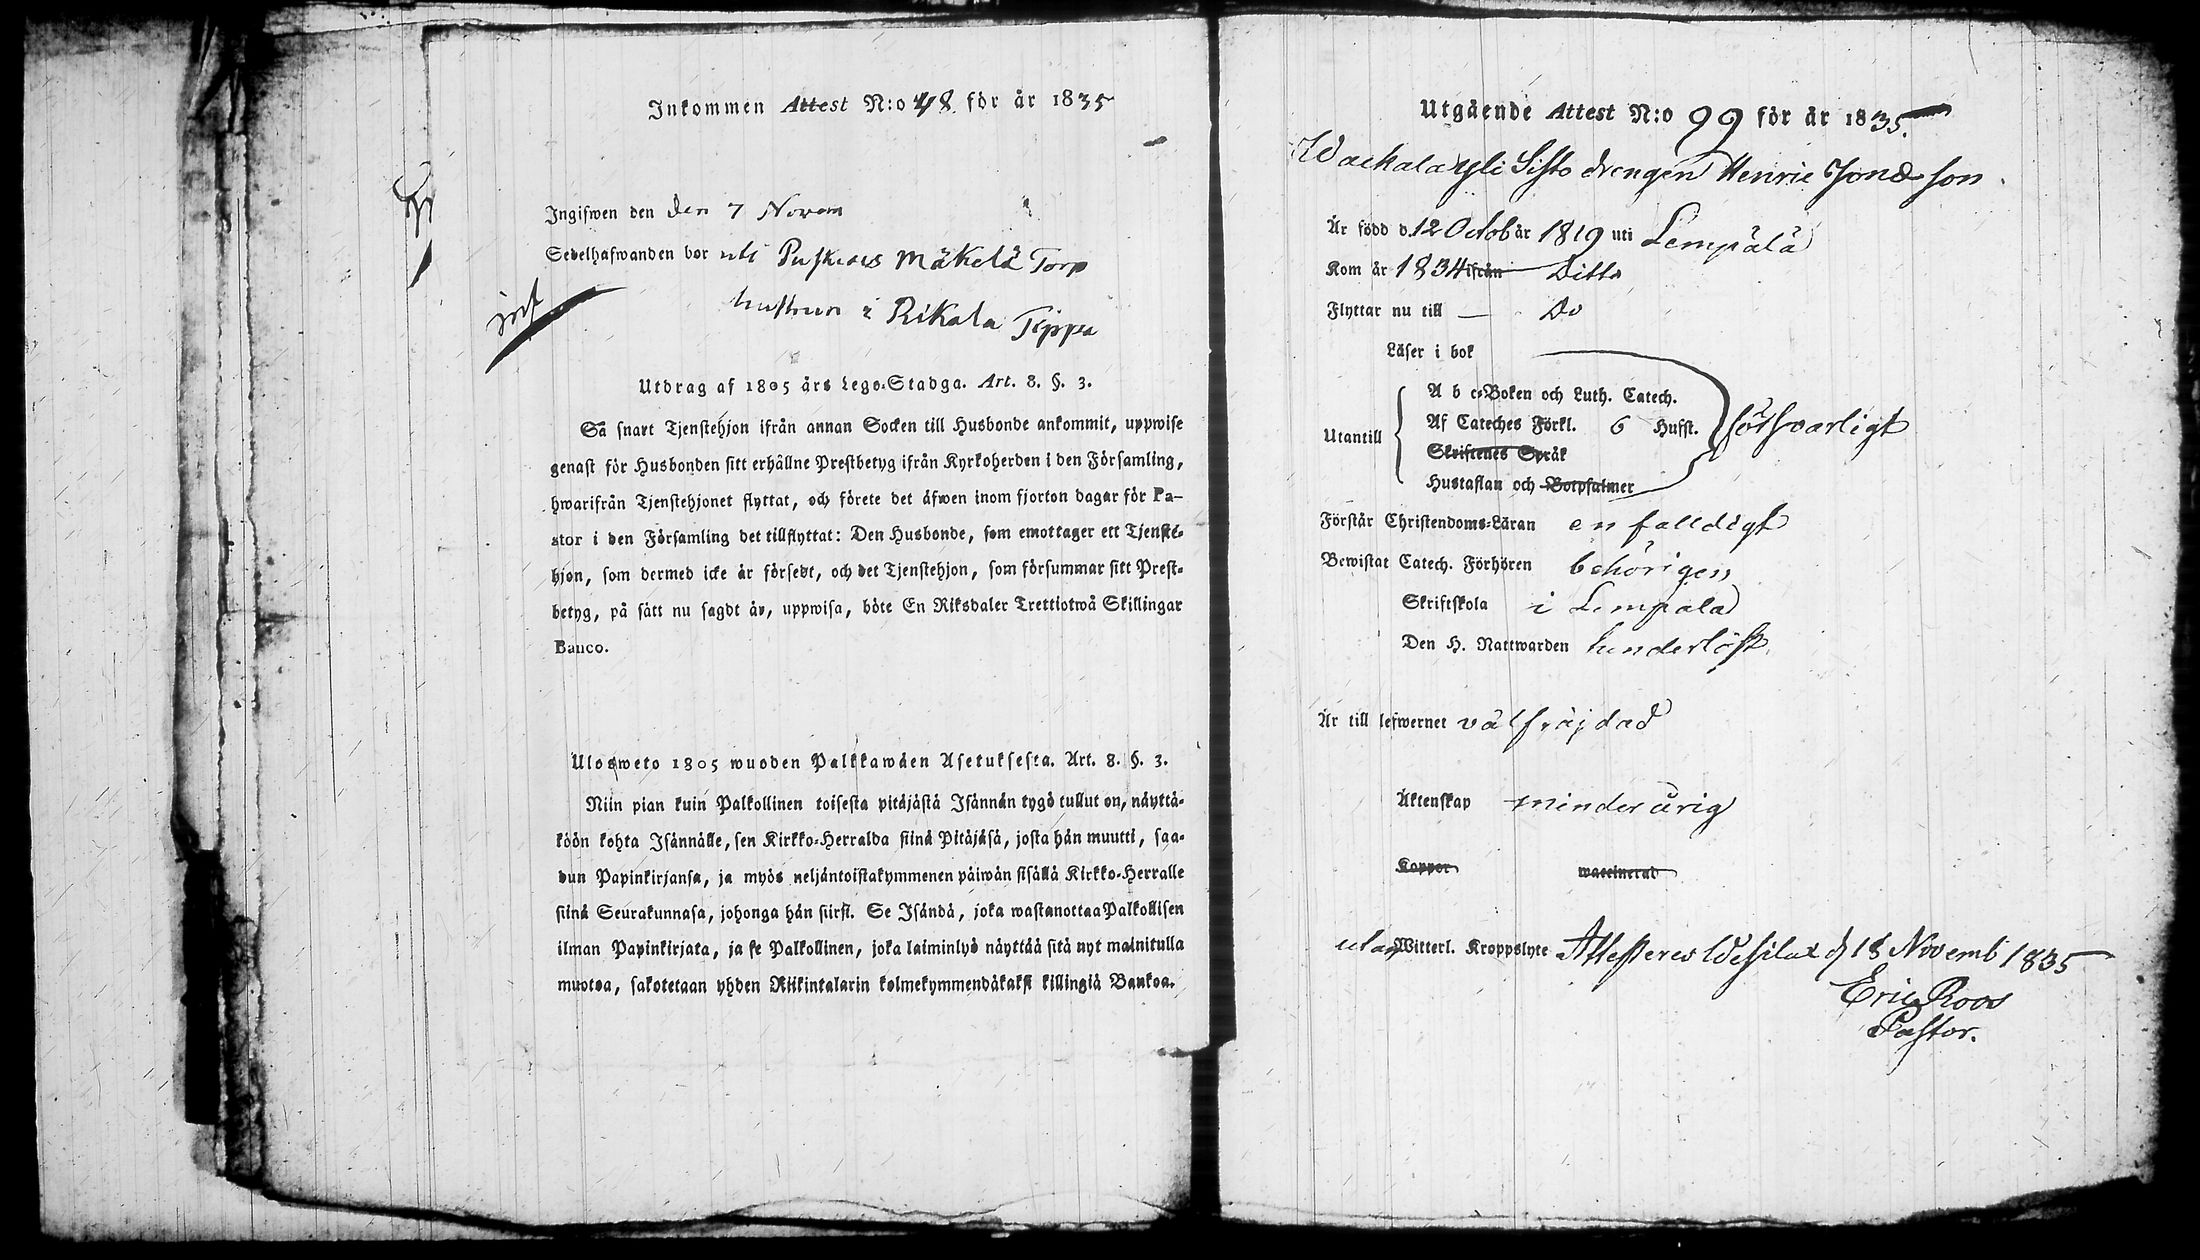 Inkommen Attest N:o 48 för år 1835
Ingifwen den den 7 Novem
Sedelhafwanden bor uti Puskais Mäkelä Torp
hustrun i Rikala Tippa
inf
Utdrag af 1805 års Lego-Stadga. Art. 8. §. 3.
Så snart Tjenstehjon ifrån annan Socken till Husbonde ankommit, uppwise
genast för Husbonden sitt erhållne Prestbetyg ifrån Kyrkoherden i den Församling,
hwarifrån Tjenstehjonet flyttat, och förete det äfwen inom fjorton dagar för Pa-
stor i den Församling det tillflyttat: Den Husbonde, som emottager ett Tjenste-
hjon, som dermed icke är försedt, och det Tjenstehjon, som försummar sitt Prest-
betyg, på sätt nu sagdt är, uppwisa, böte En Riksdaler Trettiotwå Skillingar
Banco.
Ulosweto 1805 wuoden Palkkawäen Asetuksesta. Art. 8. §. 3.
Niin pian kuin Palkollinen toisesta pitäjästä Isännän tygö tullut on, näyttä-
köön kohta Isännälle, sen Kirkko-Herralda siinä Pitäjäsä, josta hän muutti, saa-
dun Papinkirjansa, ja myös neljäntoistakymmenen päiwän sisällä Kirkko-Herralle
siinä Seurakunnasa, johonga hän siirsi. Se Isändä, joka wastanottaa Palkollisen
ilman Papinkirjata, ja se Palkollinen, joka laiminlyö näyttää sitä nyt mainitulla
muotoa, sakotetaan yhden Riikintalarin kolmekymmendäkaksi killingiä Bankoa.
Utgående Attest N:o 99 för år 1835.
Wackala Yli Sisto drengen Henric Jonasson
Är född d. 12 Octob år 1819 uti Lempälä
Kom år 1834 ifrån Ditto
Flyttar nu till — Do
Läser i bok
A b c-Boken och Luth. Catech.
Utantill Af Cateches Förkl. 6 Hufst. försvarligt
Skriftenes Språk
Hustaflan och Botpsalmer
Förstår Christendoms-Läran enfalldigt
Bewistat Catech. Förhören behörigen
Skriftskola i Lempälä
Den H. Nattwarden hinderlöst
Är till lefwernet välfräjdad
Äktenskap minderårig
Koppor waccinerad
utan Witterl. Kroppslyte Attesteras Wesilax d 18 Novemb 1835
Eric Roos
Pastor.